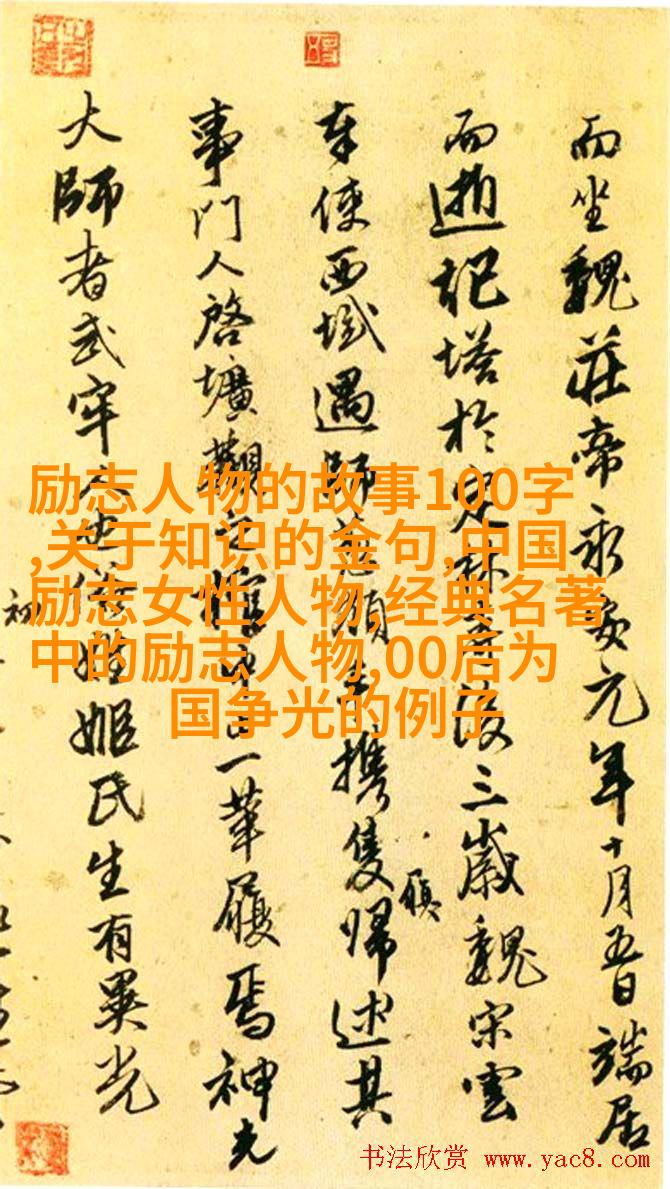 而坐魏莊帝永安元年十月五日端居
而逝記塔於定林寺後三歲魏宋雲
奉使西域遇師葱嶺手攜隻歸述其
履
事門人啓壙觀之惟一革履焉神光
大師者武牢人也俗姓姬氏生有異光
初
励志人物的故事100字
,关于知识的金句,中国
励志女性人物,经典名著
中的励志人物,00后为
国争光的例子
书法欣赏 www.yac8.com